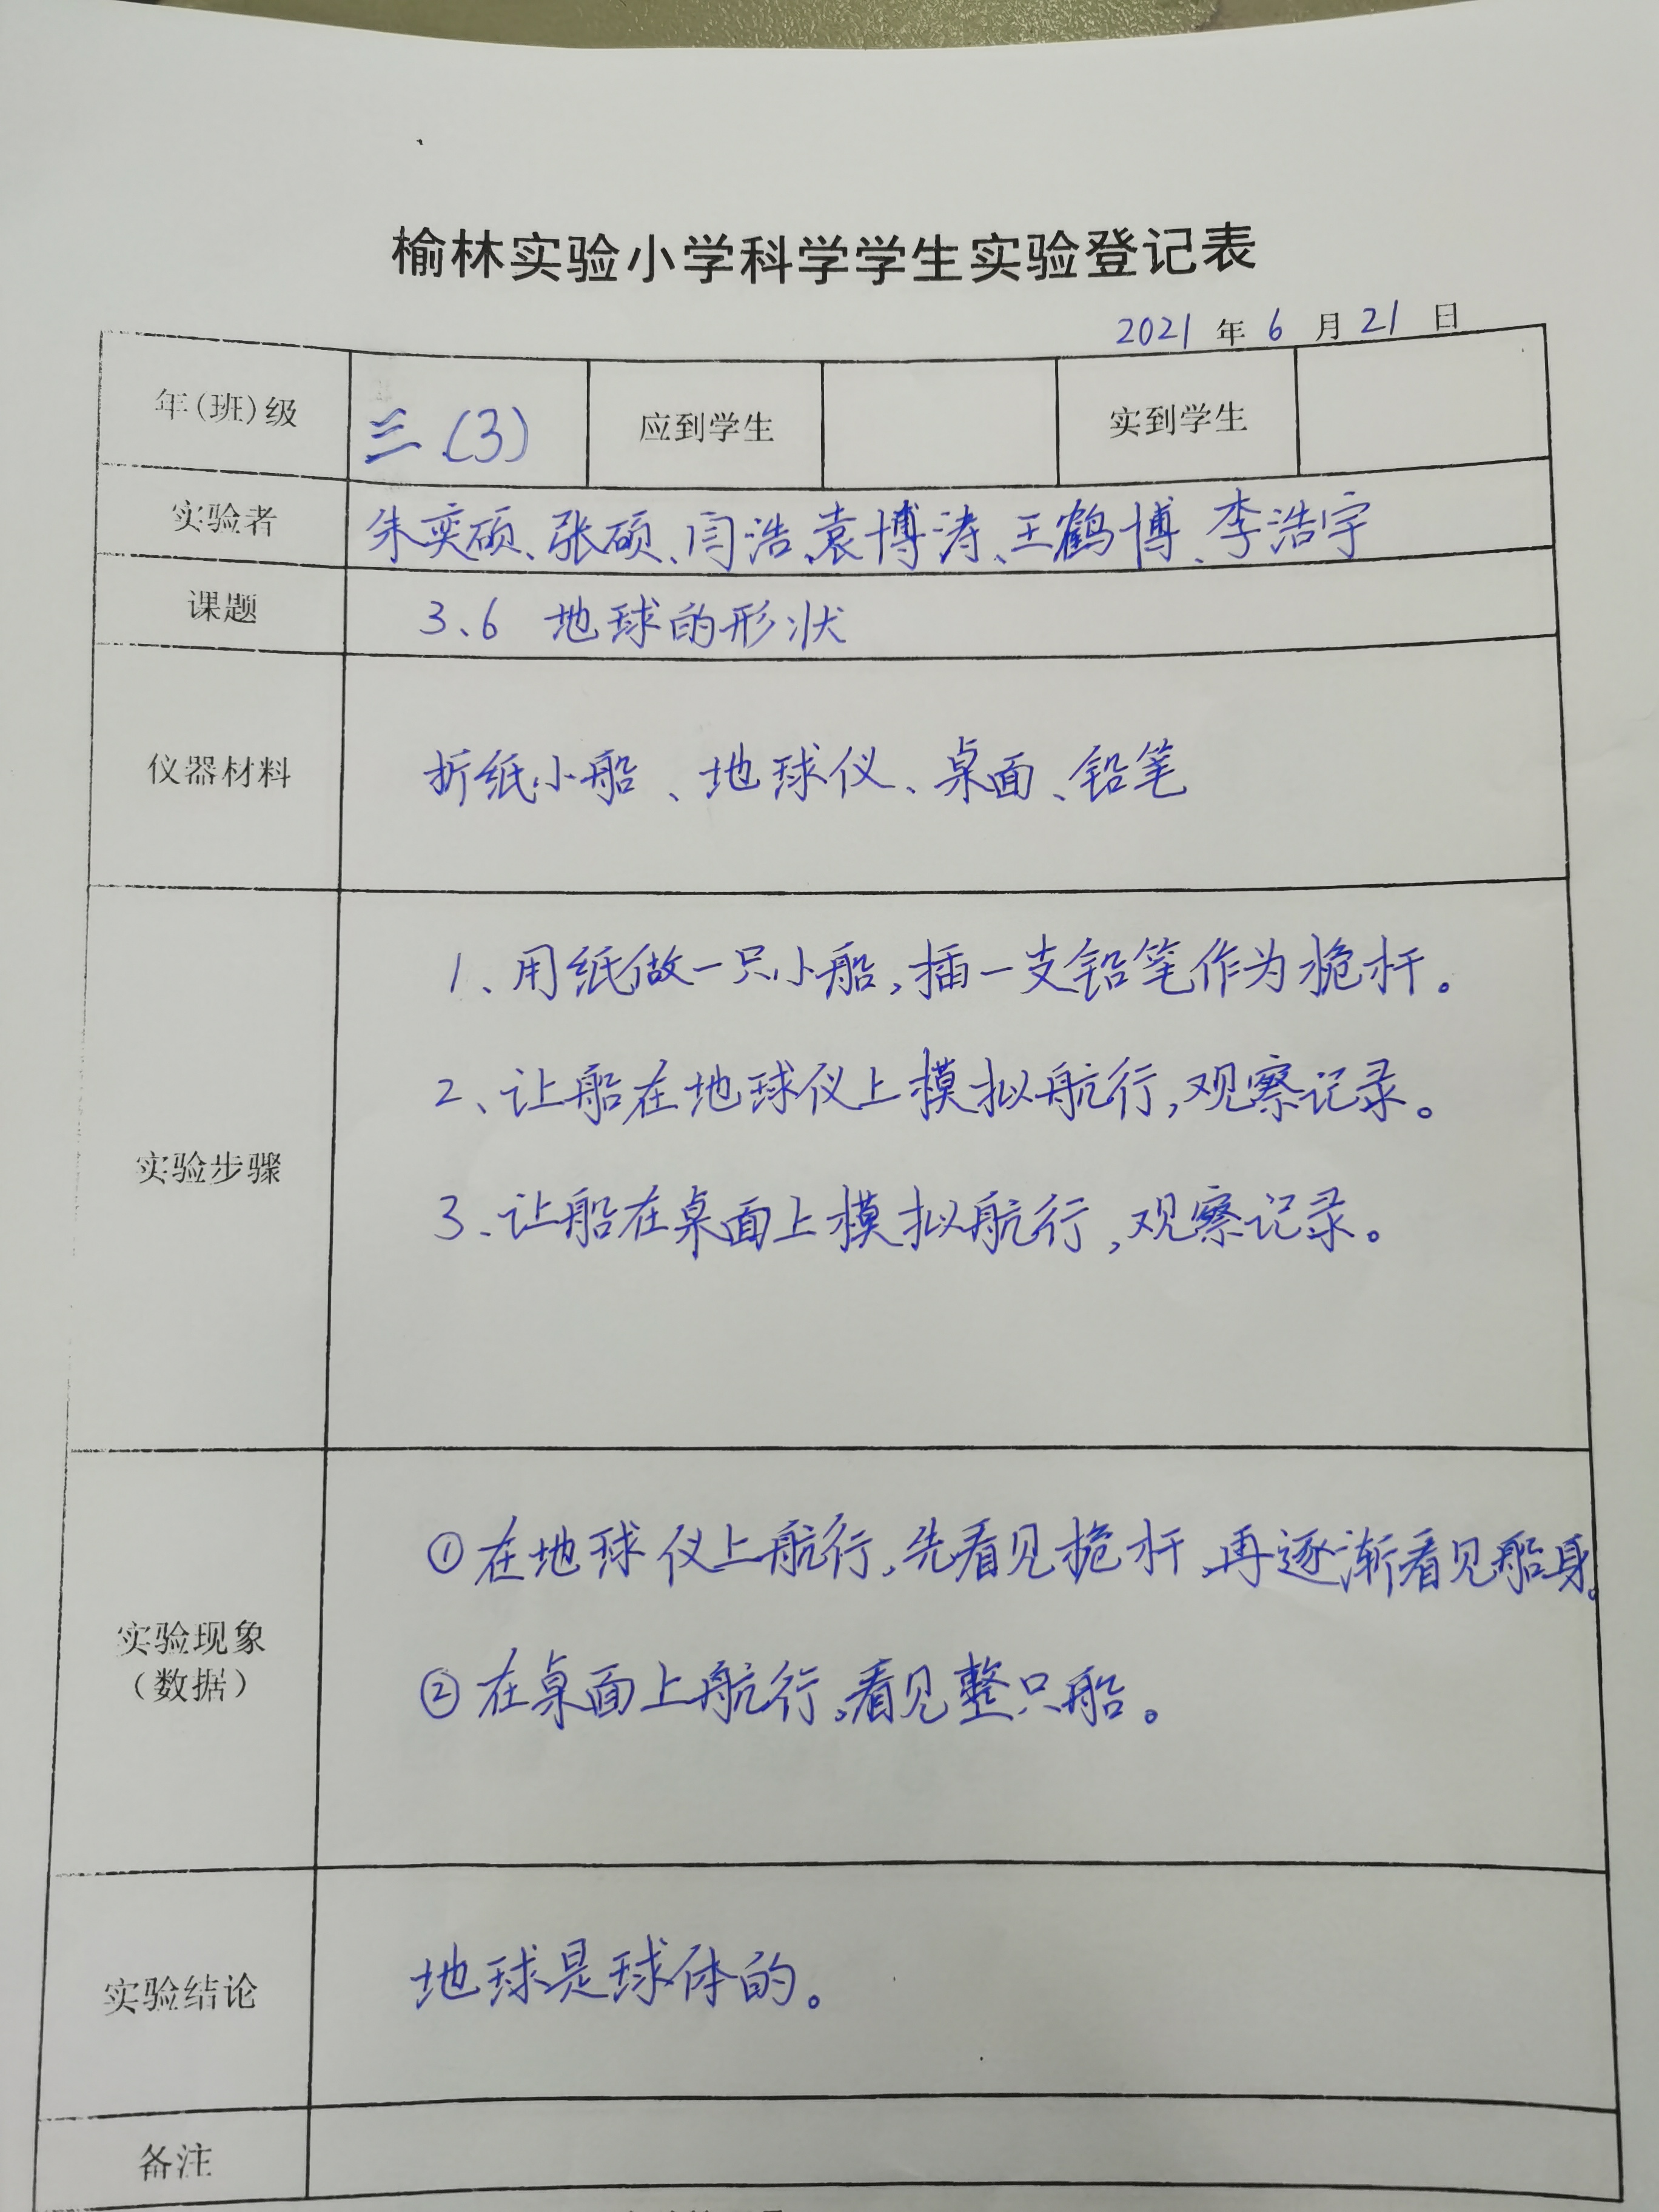 榆林实验小学科学学生实验登记表
2021 年 6 月 21 日
年(班)级 三(3) 应到学生 实到学生
实验者 朱奕硕、张硕、闫浩、袁博涛、王鹤博、李浩宇
课题 3、6 地球的形状
仪器材料 折纸小船、地球仪、桌面、铅笔
1、用纸做一只小船,插一支铅笔作为桅杆。
2、让船在地球仪上模拟航行,观察记录。
实验步骤
3、让船在桌面上模拟航行,观察记录。
①在地球仪上航行,先看见桅杆,再逐渐看见船身。
实验现象
(数据)
②在桌面上航行,看见整只船。
实验结论 地球是球体的。
备注